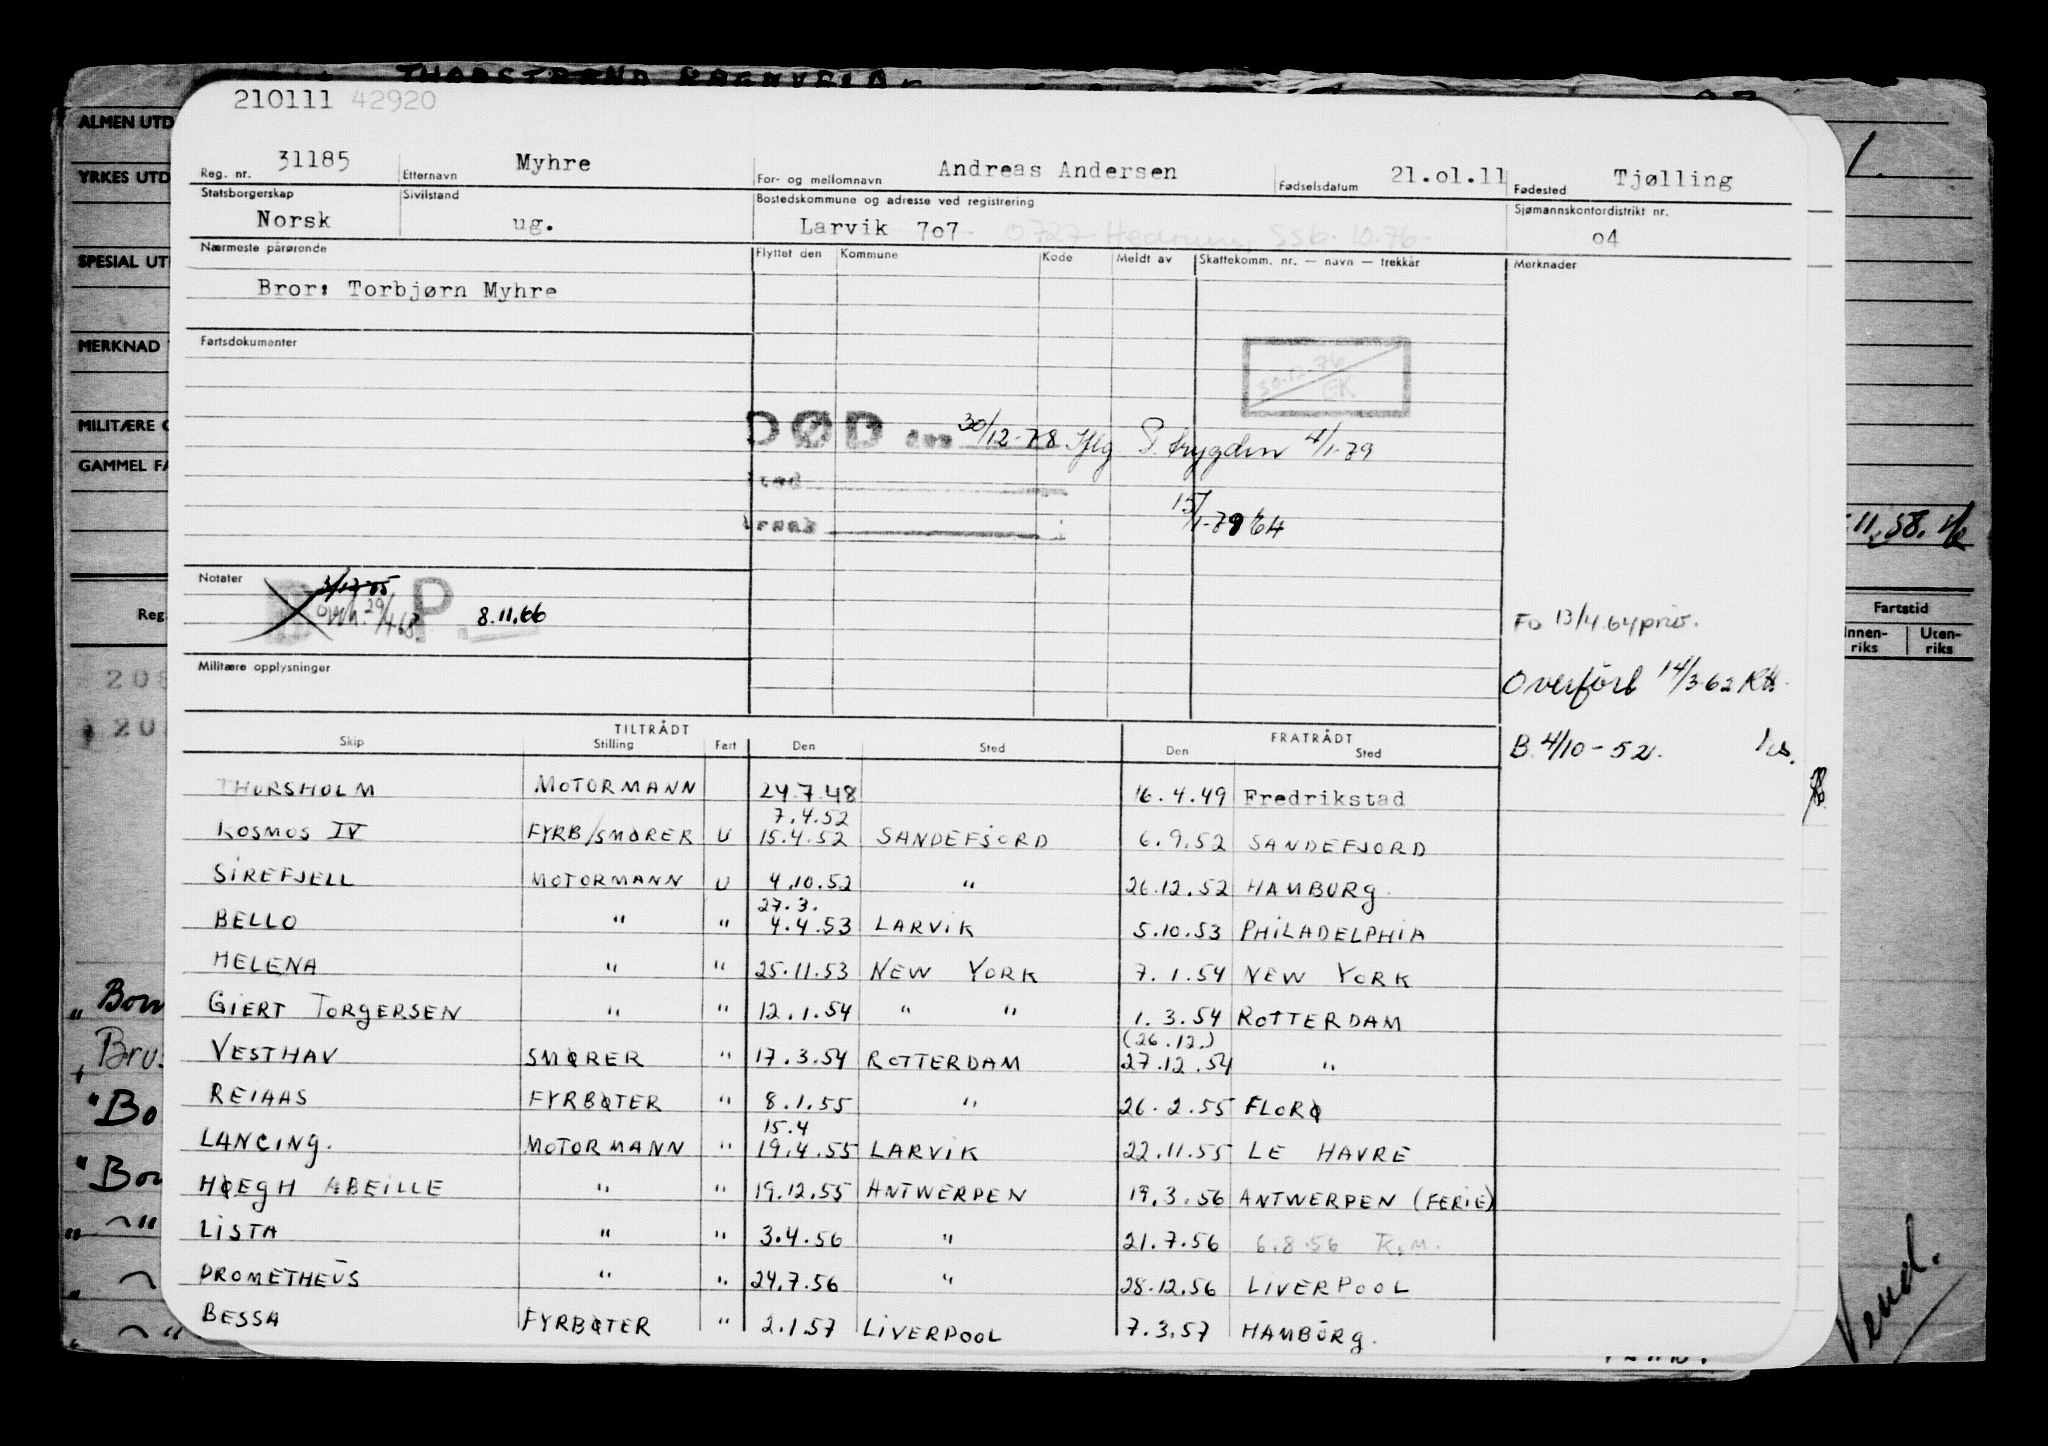 210111 42920
Reg. nr. 31185 Etternavn Myhre For- og mellomnavn Andreas Andersen Fødselsdatum 21.01.11 Fødested Tjølling
Statsborgerskap Norsk Sivilstand ug. Bostedskommune og adresse ved registrering Larvik 707 - 0727 Hedrum, SSb. 10.76- Sjømannskontordistrikt nr. 04
Nærmeste pårørende Flyttet den Kommune Kode Meldt av Skattekomm. nr. — navn — trekkår Merknader
Bror: Torbjørn Myhre
Fartsdokumenter
30.12.76
EK
DØD den 30/12-78 Iflg 4/1-79
Sted
Årsak
15/1-79
Notater
3/12-65
29/4 68
P. 8.11.66
Fo 13/4.64 priv.
Militære opplysninger
Overført 14/3-62
B. 4/10-52.
TILTRÅDT FRATRÅDT
Skip Stilling Fart Den Sted Den Sted
THORSHOLM MOTORMANN 24.7.48 16.4.49 Fredrikstad
7.4.52
KOSMOS IV FYRB/SMØRER U 15.4.52 SANDEFJORD 6.9.52 SANDEFJORD
SIREFJELL MOTORMANN U 4.10.52 " 26.12.52 HAMBURG.
27.3.
BELLO " " 4.4.53 LARVIK 5.10.53 PHILADELPHIA
HELENA " " 25.11.53 NEW YORK 7.1.54 NEW YORK
GIERT TORGERSEN " " 12.1.54 " " 1.3.54 ROTTERDAM
(26.12.)
VESTHAV SMØRER " 17.3.54 ROTTERDAM 27.12.54 "
REIAAS FYRBØTER " 8.1.55 " 26.2.55 FLORØ
15.4
LANCING. MOTORMANN " 19.4.55 LARVIK 22.11.55 LE HAVRE
HØEGH ABEILLE " " 19.12.55 ANTWERPEN 19.3.56 ANTWERPEN (FERIE)
LISTA " " 3.4.56 " 21.7.56 6.8.56 K.M.
PROMETHEUS " " 24.7.56 " 28.12.56 LIVERPOOL
BESSA FYRBØTER " 2.1.57 LIVERPOOL 7.3.57 HAMBURG.
ALMEN UTD
YRKES UTD
SPESIAL UT
MERKNAD
MILITÆRE
GAMMEL FA
Reg.
Fartstid
Innen-riks Uten-riks
11.58.
Vend.